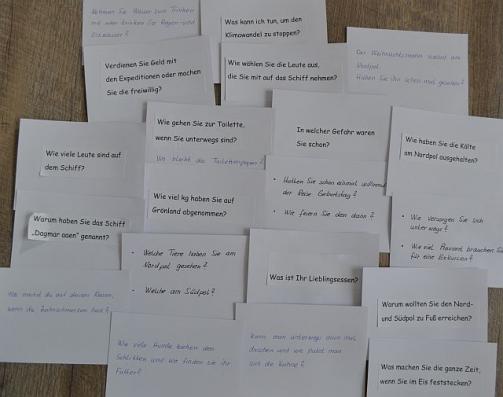 Was kann ich tun, um den
Klimawandel zu stoppen?
Verdienen Sie Geld mit
den Expeditionen oder machen
Sie die freiwillig?
Wie wählen Sie die Leute aus,
die Sie mit auf das Schiff nehmen?
Der Weihnachtsmann wohnt am
Nordpol.
Haben Sie ihn schon mal gesehen?
Wie gehen Sie zur Toilette,
wenn Sie unterwegs sind?
Wo bleibt das Toilettenpapier?
In welcher Gefahr waren
Sie schon?
Wie haben Sie die Kälte
am Nordpol ausgehalten?
Wie viele Leute sind auf
dem Schiff?
Wie viel kg haben Sie auf
Grönland abgenommen?
• Hatten Sie schon einmal während
der Reise Geburtstag?
• Wie feiern Sie den dann?
Warum haben Sie das Schiff
„Dagmar aaen" genannt?
• Wie versorgen Sie sich
unterwegs?
• Wie viel Proviant brauchen Sie
für eine Exkursion?
• Welche Tiere haben Sie am
Nordpol gesehen?
• Welche am Südpol?
Was ist Ihr Lieblingsessen?
Warum wollten Sie den Nord-
und Südpol zu Fuß erreichen?
wenn du
Wie viele Hunde ziehen den
Schlitten und wo finden sie ihr
Futter?
Kann man unterwegs auch mal
duschen und wo putzt man
sich die Zähne?
Was machen Sie die ganze Zeit,
wenn Sie im Eis feststecken?